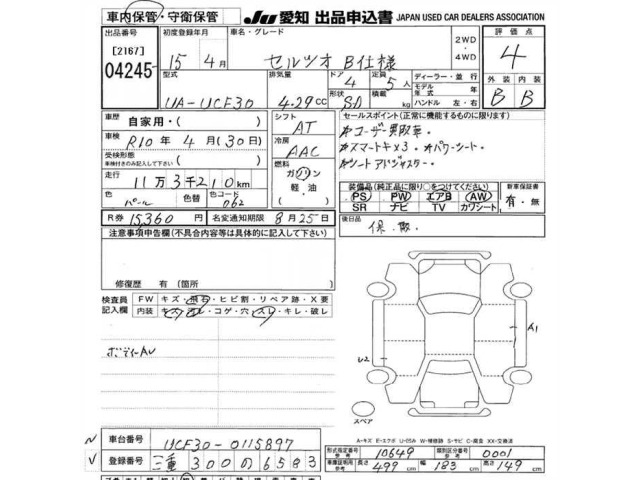 車内保管・守衛保管 JU 愛知 出品申込書 JAPAN USED CAR DEALERS ASSOCIATION
出品番号 初度登録年月 車名・グレード 2WD 4WD 評価点
[2167] 04245 15年 4月 セルシオ B仕様 4
型式 排気量 ドア 定員 ディーラー・並行 外装 内装
UA-UCF30 4.29cc 4 5人 モデル年式 年 B B
形状 SD 積載 kg ハンドル 左・右
車歴 自家用・( ) シフト セールスポイント(正常に機能するものに限ります)
車検 R10年 4月 (30日) AT *ユーザー買取車・
受検形態 車検付きのみ記入して下さい ( ) 冷房 AAC *スマートキ×3・*パワーシート・
走行 11万3千210km 燃料 ガソリン 軽・油 ( ) *シートアドジャスター・
色 パール 色替 色コード 062 装備品(純正品に限り○をつけてください) 新車保証書
PS PW エアB AW 有・無
R券 15,360円 名変通知期限 8月25日 SR ナビ TV カワシート
注意事項申告欄(不具合内容等は具体的に記入して下さい) 後日品
保.取.
修復歴 有(箇所 )
検査員記入欄 FW キズ・飛石・ヒビ割・リペア跡・X要
内装 キズ・コゲ・穴・スレ・キレ・破レ
ボディーAU
A1
U2
スペア
A-キズ E-エクボ U-凹み W-補修跡 S-サビ C-腐食 XX-交換済
車台番号 UCF30-0115897 形式指定番号 参考 10649 類別区分番号 参考 0001
登録番号 三重 300の6583 車庫証明用 参考 長さ 499cm 幅 183cm 高さ 149cm